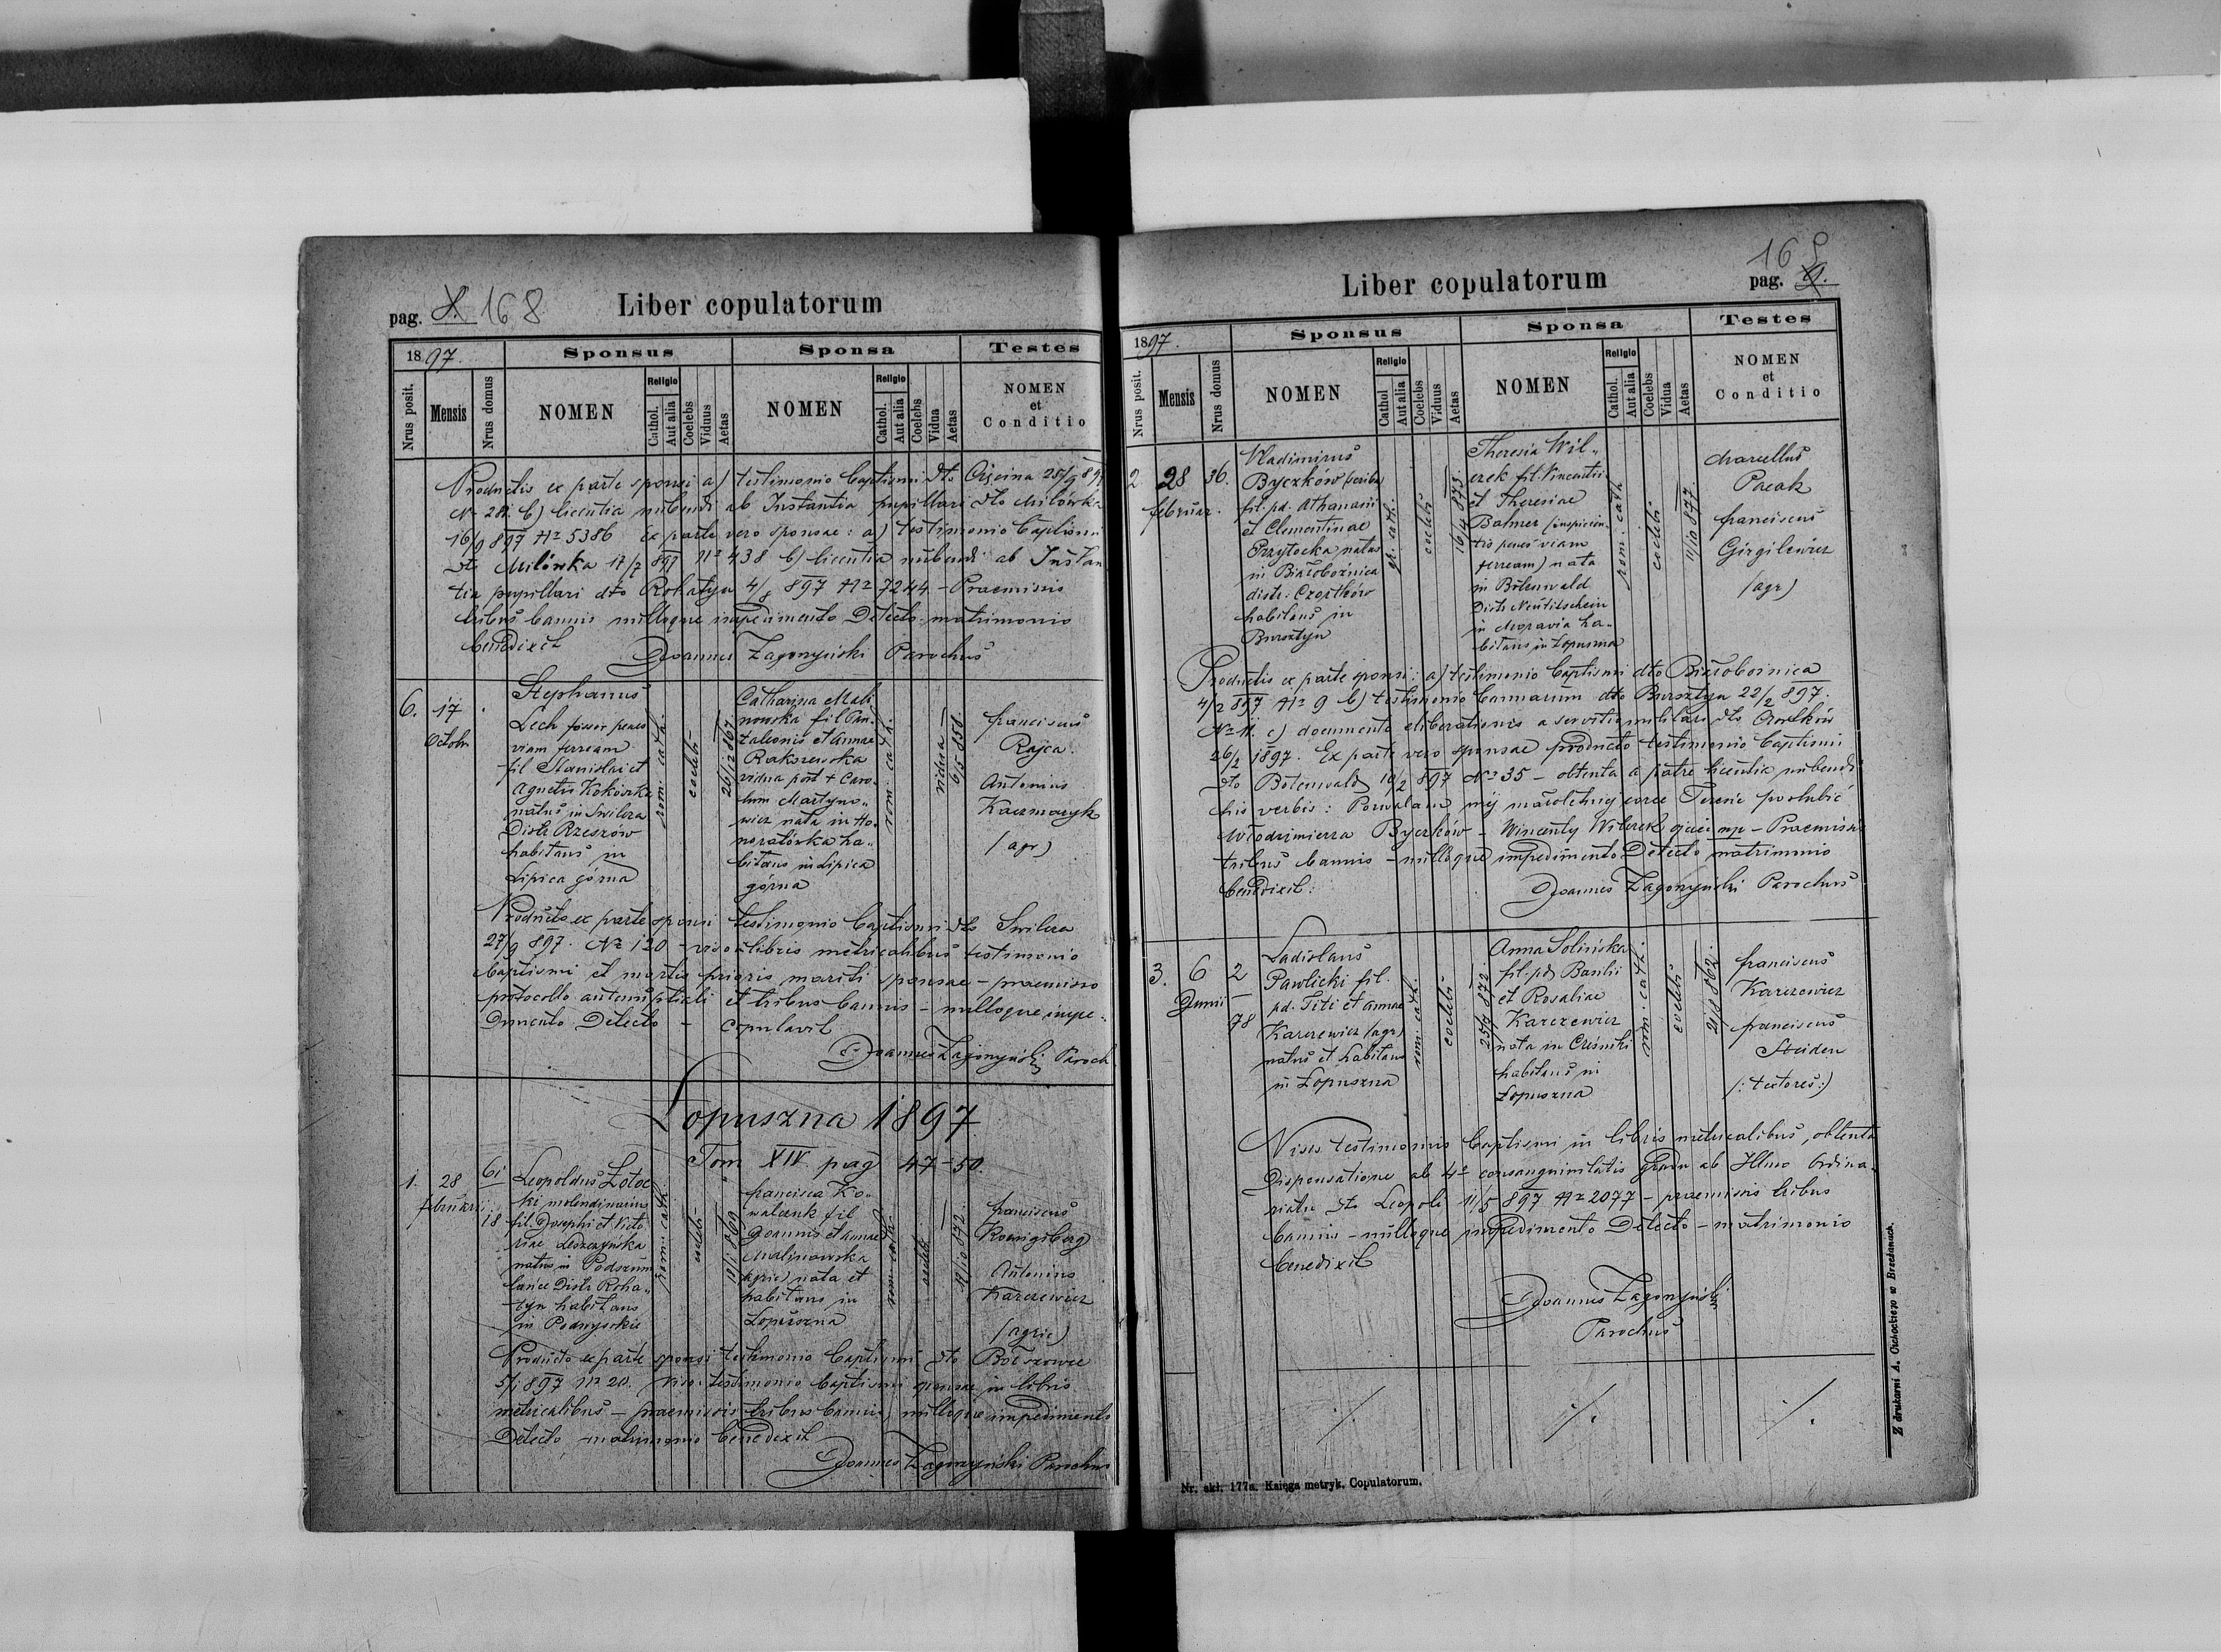 pag. 8. 168
Liber copulatorum
1897.
Sponsus
Sponsa
Testes
Nrus posit.
Mensis
Nrus domus
NOMEN
Religio
Cathol.
Aut alia
Coelebs
Viduus
Aetas
NOMEN
Religio
Cathol.
Aut alia
Coelebs
Vidua
Aetas
NOMEN
et
Conditio
Productis ex parte sponsi a) testimonio baptismi dto
b) licentia nubendi ab Instantia pupillari dto Milówka
16/9 897 No 5386 Ex parte vero sponsae: a) testimonio baptismi
dto Milówka 17/7 897 No 438 b) licentia nubendi ab Instan
tia pupillari dto Rohatyn 4/8 897 No 7244 - Praemissis
tribus bannis nulloque impedimento detecto matrimonio
benedixit
Joannes Zagorzyński Parochus
6.
17
Octobr
Stephanus
Lech fossor penes
viam ferream
fil Stanislai et
Agnetis Kokoszka
natus in Swilcza
Distr Rzeszów
habitans in
Lipica górna
rom: cath:
coelebs
26/12 867
Catharina Mali
nowska fil Pan
taleonis et Annae
Rakszewska
vidua post + Caro
lum Martyno
wicz nata in Ho
noratówka ha
bitans in Lipica
górna
rom: cath:
vidua
6/5 858
Franciscus
Rajca
Antonius
Kaczmaryk
(agr)
Producto ex parte sponsi testimonio baptismi dto Swilcza
27/9 897. No 120 - viso in libris metricalibus testimonio
baptismi et mortis prioris mariti sponsae - praemisso
protocollo et tribus bannis - nulloque impe
dimento detecto - copulavit
Joannes Zagorzyński Paroch
Łopuszna 1897
Tom XIV. pag 47-50.
1.
28
Februarii
61
18
Leopoldus Zotoc
ki molendinarius
fil. Josephi et Victo
riae Leszczyńska
natus in Podszum
lańce Distr Roha
tyn habitans
in Podwysokie
rom: cath:
coelebs
18/1 869
Francisca Ko
walczuk fil
Joannis et Annae
Malinowska
agric) nata et
habitans in
Łopuszna
rom: cath:
coelebs
18/10 872
Franciscus
Koenigsberg
Antonius
Karczewicz
(agric)
Producto ex parte sponsi testimonio baptismi dto Bołszowce
5/1 897 No 20. Viso testimonio baptismi sponsae in libris
metricalibus - praemissis tribus bannis, nulloque impedimento
detecto - matrimonio benedixit
Joannes Zagorzyński Parochus
169
Liber copulatorum
pag. 9.
1897.
Sponsus
Sponsa
Testes
Nrus posit.
Mensis
Nrus domus
NOMEN
Religio
Cathol
Aut alia
Coelebs
Viduus
Aetas
NOMEN
Religio
Cathol.
Aut alia
Coelebs
Vidua
Aetas
NOMEN
et
Conditio
2
28
Februar.
36.
Vladimirus
Byczków scriba
fil. pd. Athanasii
et Clementinae
Przytocka natus
in Białobożnica
distr. Czortków
habitans in
Bursztyn
gr. cath:
coelebs
16/4 873.
Theresia Wil
czek fil Vincentii
et Theresiae
Balmer (inspicien
tis penes viam
ferream) nata
in Bölenwald
Distr Neutitschein
in Moravia ha
bitans in Łopuszna
rom: cath
coelebs
11/10 877.
Marcellus
Pacak
Franciscus
Girgilewicz
(agr)
Productis ex parte sponsi: a) testimonio baptismi dto Białobożnica
4/2 897 No 9 b) testimonio bannarum dto Bursztyn 22/2 897.
No 11. c) documento eliberationis a servitio militari dto Czortków
26/2 1897. Ex parte vero sponsae producto testimonio baptismi
dto Bölenwald 10/2 897 No 35 - obtenta a patre licentia nubendi
his verbis: Pozwalam mej małoletniej córce Teresie poślubić
Włodzimierza Byczków - Wincenty Wilczek ojciec mp - Praemissis
tribus bannis - nulloque impedimento detecto matrimonio
benedixit:
Joannes Zagorzyński Parochus
3.
6
Junii
2
78
Ladislaus
Pawlicki fil.
pd. Titi et Annae
Karczewicz (agr)
natus et habitans
in Łopuszna
rom: cath:
coelebs
25/7 872
Anna Solińska
fil. pd Basilii
et Rosaliae
Karczewicz
nata in Cześniki
habitans in
Łopuszna
rom: cath:
coelebs
21/8 862.
Franciscus
Karczewicz
Franciscus
(: textores:)
Visis testimoniis baptismi in libris metricalibus, obtenta
dispensatione ab 4o consanguinitatis gradu ab Illmo Ordina
riatu dto Leopoli 11/5 897 No 2077 - praemissis tribus
bannis - nulloque impedimento detecto - matrimonio
benedixit
Joannes Zagorzyński
Parochus
Nr. skł. 177a. Księga metryk. Copulatorum.
Z drukarni A. Cichockiego w Brzeżanach.